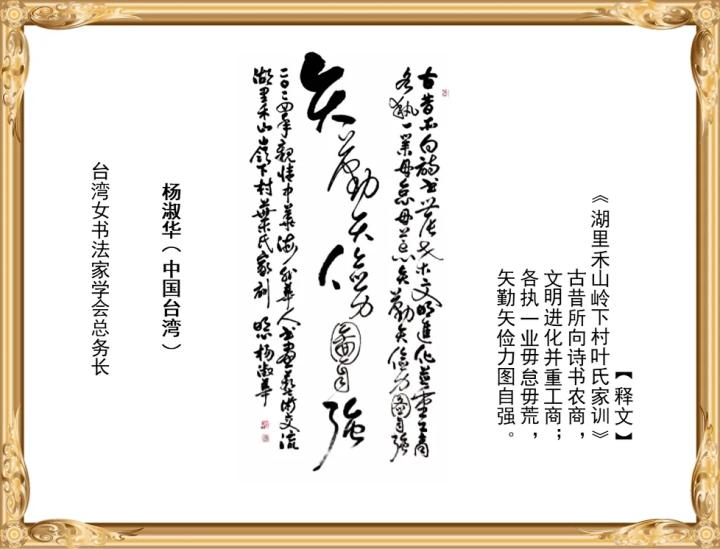 【释文】
《湖里禾山岭下村叶氏家训》
古昔所向诗书农商，
文明进化并重工商；
各执一业毋怠毋荒，
矢勤矢俭力图自强。
古昔所向诗书农商文明進化并重工商
各执一業毋怠毋荒矢勤矢儉力圖自強
矢勤矢儉力圖自強
二〇二四年親情中華海外華人書畫藝術交流
湖里禾山嶺下村葉氏家訓 楊淑華
杨淑华（中国台湾）
台湾女书法家学会总务长